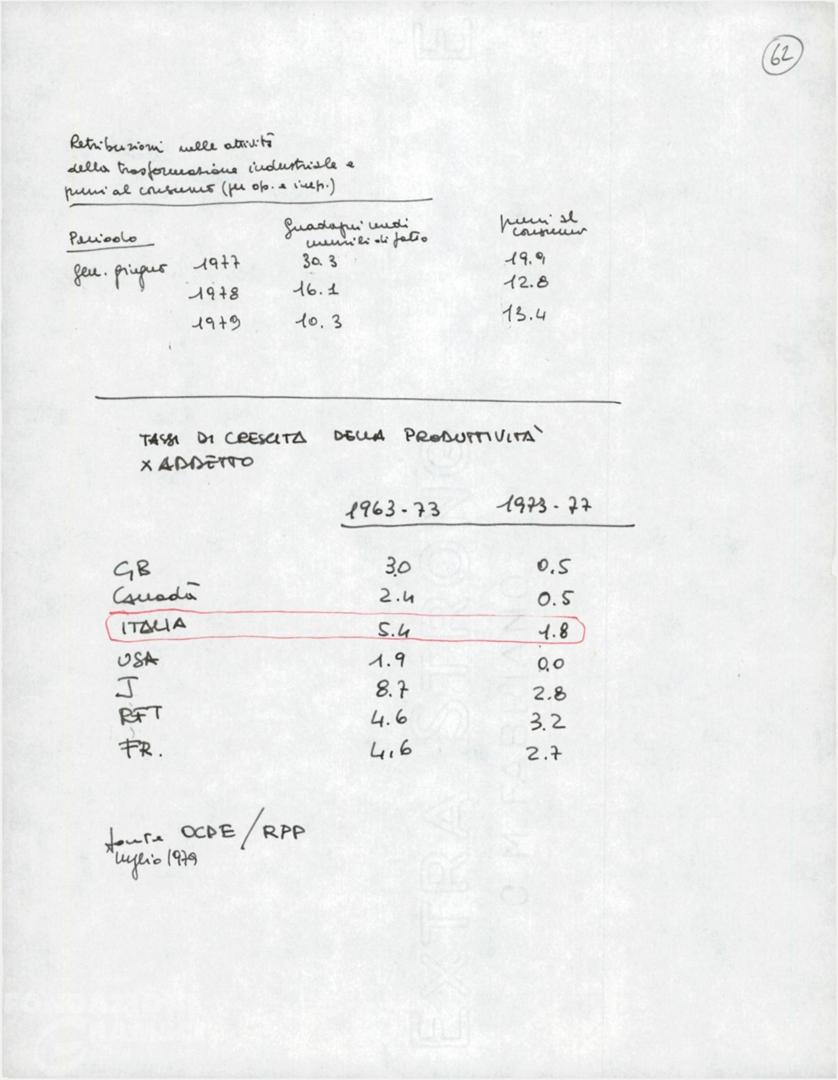 62
Retribuzioni nelle attività
della trasformazione industriale e
prezzi al consumo (per op. e imp.)
Periodo
Guadagni medi
mensili di fatto
prezzi al
consumo
gen. giugno 1977 30.3 19.9
1978 16.1 12.8
1979 10.3 13.4
TASSI DI CRESCITA DELLA PRODUTTIVITÀ
X ADDETTO
1963-73 1973-77
GB 3.0 0.5
Canadà 2.4 0.5
ITALIA 5.4 1.8
USA 1.9 0.0
J 8.7 2.8
RFT 4.6 3.2
FR. 4.6 2.7
fonte OCDE / RPP
luglio 1979
EXTRA STRONG
C. M. FABRIANO